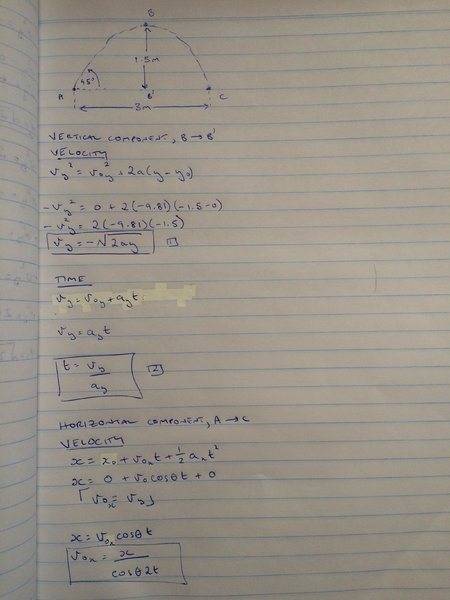 B
1.5m
45°
A
B'
C
3m
VERTICAL COMPONENT, B → B'
VELOCITY
v_y² = v_0y² + 2a(y - y_0)
-v_y² = 0 + 2(-9.81)(-1.5-0)
-v_y² = 2(-9.81)(-1.5)
v_y = -√2ay [1]
TIME
v_y = v_0y + a_y t
v_y = a_y t
t = v_y / a_y [2]
HORIZONTAL COMPONENT, A → C
VELOCITY
x = x_0 + v_0x t + ½ a_x t²
x = 0 + v_0 cosθt + 0
x = v_0x cosθt
v_0x = x / cosθ2t